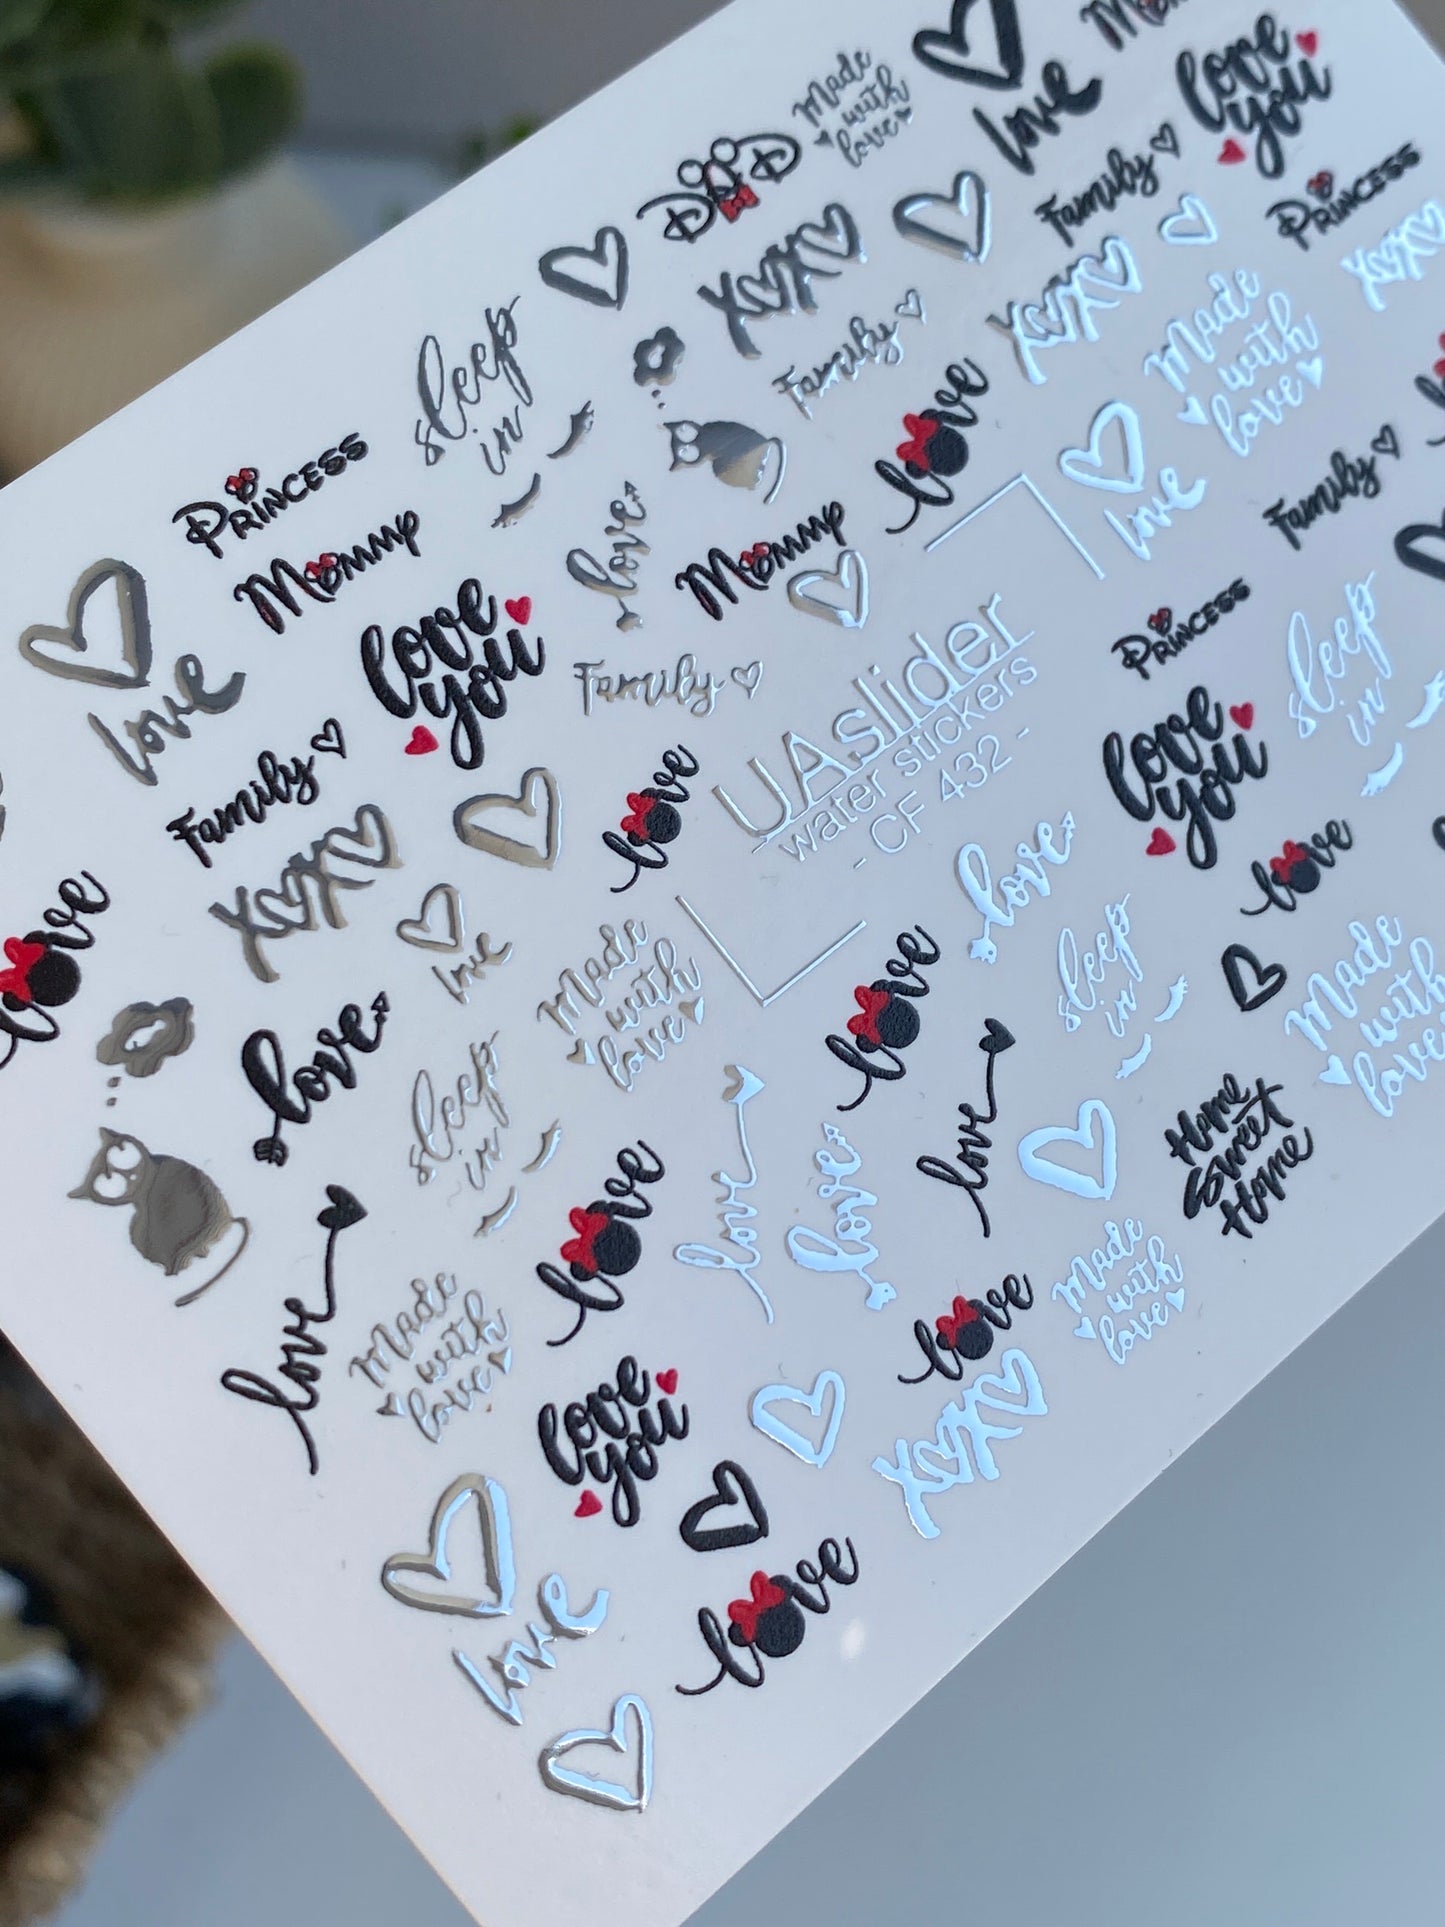 Made
with
love
love
love
you
DAD
Family
Princess
XOXO
XOXO
XOXO
sleep
in
Family
Made
with
love
love
Princess
Mommy
love
Mommy
love
Family
love
love
you
Family
UAslider
water stickers
- CF 432 -
Princess
sleep
in
love
you
Family
love
love
love
XOXO
love
love
Made
with
love
love
sleep
in
love
Made
with
love
love
sleep
in
love
love
love
Home
Sweet
Home
love
love
Made
with
love
love
Made
with
love
love
you
XOXO
love
love